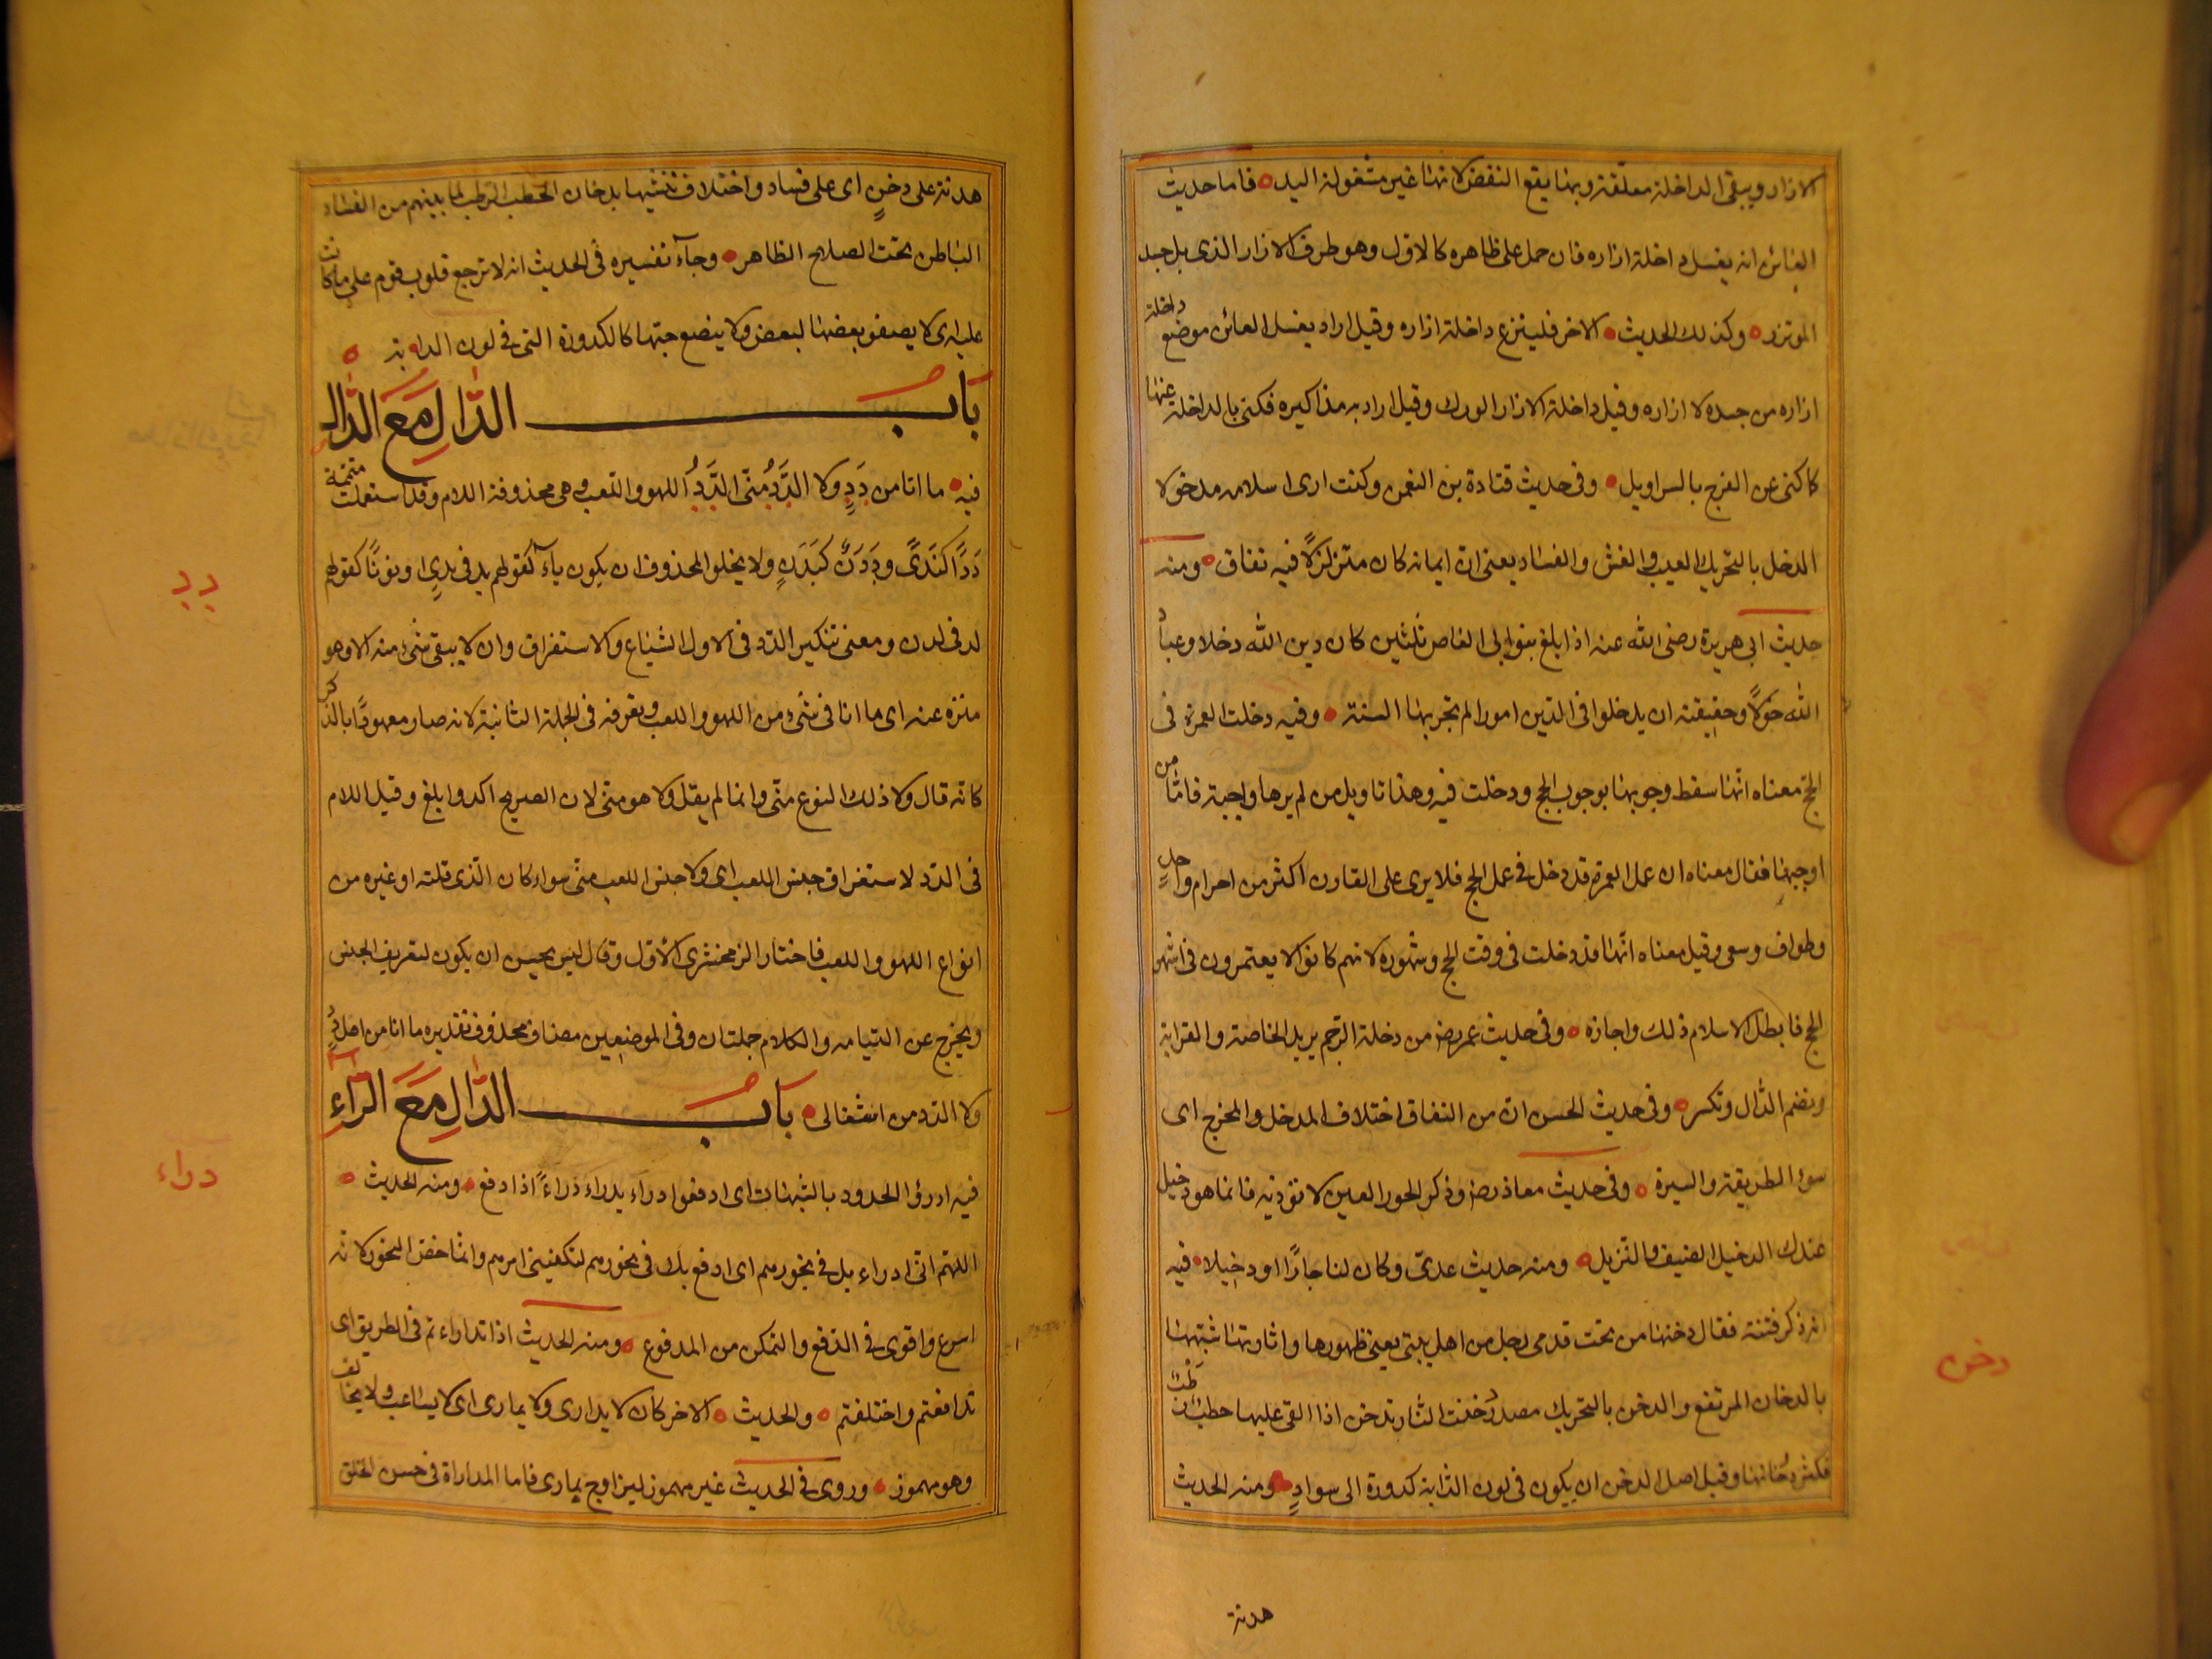 الازار ويبقى الداخلة معلقة وبها يقع النفض لانها غير مشغولة اليد فاما حديث
العائن انه يغسل داخلة ازاره فان حمل على ظاهره كالاول وهو طرف الازار الذى يلى جسد
الموتزر وكذلك الحديث الاخر فلينزع داخلة ازاره وقيل اراد يغسل العائن موضع داخلة
ازاره من جسده لا ازاره وقيل داخلة الازار الورك وقيل اراد به مذاكيره فكنى بالداخلة عنها
كما كنى عن الفرج بالسراويل وفى حديث قتادة بن النعمن وكنت ارى اسلامه مدخولا
الدخل بالتحريك العيب والغش والفساد يعنى ان ايمانه كان متزلزلا فيه نفاق ومنه
حديث ابى هريرة رضى الله عنه اذا بلغ بنوا ابى العاص ثلثين كان دين الله دخلا وعباد
الله خولا وحقيقته ان يدخلوا فى الدين امورا لم تجر بها السنة وفيه دخلت العمرة فى
الحج معناه انها سقط وجوبها بوجوب الحج ودخلت فيه وهذا تاويل من لم يرها واجبة فاما من
اوجبها فقال معناه ان عمل العمرة قد دخل فى عمل الحج فلا يرى على القارن اكثر من احرام واحد
وطواف وسعى وقيل معناه انها قد دخلت فى وقت الحج وشهوره لانهم كانوا لا يعتمرون فى اشهر
الحج فابطل الاسلام ذلك واجازه وفى حديث عمر رضه من دخلة الرحم يريد الخاصة والقرابة
وتضم الدال وتكسر وفى حديث الحسن ان من النفاق اختلاف المدخل والمخرج اى
سوء الطريقة والسيرة وفى حديث معاذ رضه وذكر الحور العين لا تؤذيه فانما هو دخيل
عندك الدخيل الضيف والنزيل ومنه حديث عدى وكان لنا جارا او دخيلا فيه
انه ذكر فتنة فقال دخنها من تحت قدمى رجل من اهل بيتى يعنى ظهورها واثارتها شبهها
بالدخان المرتفع والدخن بالتحريك مصدر دخنت النار تدخن اذا القى عليها حطب رطب
فكثر دخانها وقيل اصل الدخن ان يكون فى لون الدابة كدورة الى سواد ومنه الحديث
هدنة
دخن
هدنة على دخن اى على فساد واختلاف تشبيها بدخان الحطب الرطب لما بينهم من الفساد
الباطن تحت الصلاح الظاهر وجآء تفسيره فى الحديث انه لا ترجع قلوب قوم على ما كانت
عليه اى لا يصفو بعضها لبعض ولا ينصع حبها كالكدورة التى فى لون الدابة
باب الدال مع الدال
فيه ما انا من دد ولا الدد منى الدد اللهو واللعب وهى محذوفة اللام وقد استعملت متممة
ددا كندى وددن كبدن ولا يخلو المحذوف ان يكون يآء كقولهم يد فى يدى او نونا كقولهم
لد فى لدن ومعنى تنكير الدد فى الاول الشياع والاستغراق وان لا يبقى شىء منه الا وهو
منزه عنه اى ما انا فى شىء من اللهو واللعب وتعريفه فى الجملة الثانية لانه صار معهودا بالذكر
كانه قال ولا ذلك النوع منى وانما لم يقل ولا هو منى لان الصريح اكد وابلغ وقيل اللام
فى الدد لاستغراق جنس اللعب اى ولا جنس اللعب منى سواء كان الذى قلته او غيره من
انواع اللهو واللعب فاختار الزمخشرى الاول وقال ليس يحسن ان يكون لتعريف الجنس
ويخرج عن التيامه والكلام جملتان وفى الموضعين مضاف محذوف تقديره ما انا من اهل دد
ولا الدد من اشغالى باب الدال مع الراء
فيه ادرؤا الحدود بالشبهات اى ادفعوا دراء يدراء دراء اذا دفع ومنه الحديث
اللهم انى ادراء بك فى نحورهم اى ادفع بك فى نحورهم لتكفينى امرهم وانما خص النحور لانه
اسرع واقوى فى الدفع والتمكن من المدفوع ومنه الحديث اذا تداراءتم فى الطريق اى
تدافعتم واختلفتم والحديث الاخر كان لا يدارى ولا يمارى اى لا يشاغب ولا يخالف
وهو مهموز وروى فى الحديث غير مهموز ليزاوج يمارى فاما المداراة فى حسن الخلق
دد
دراء